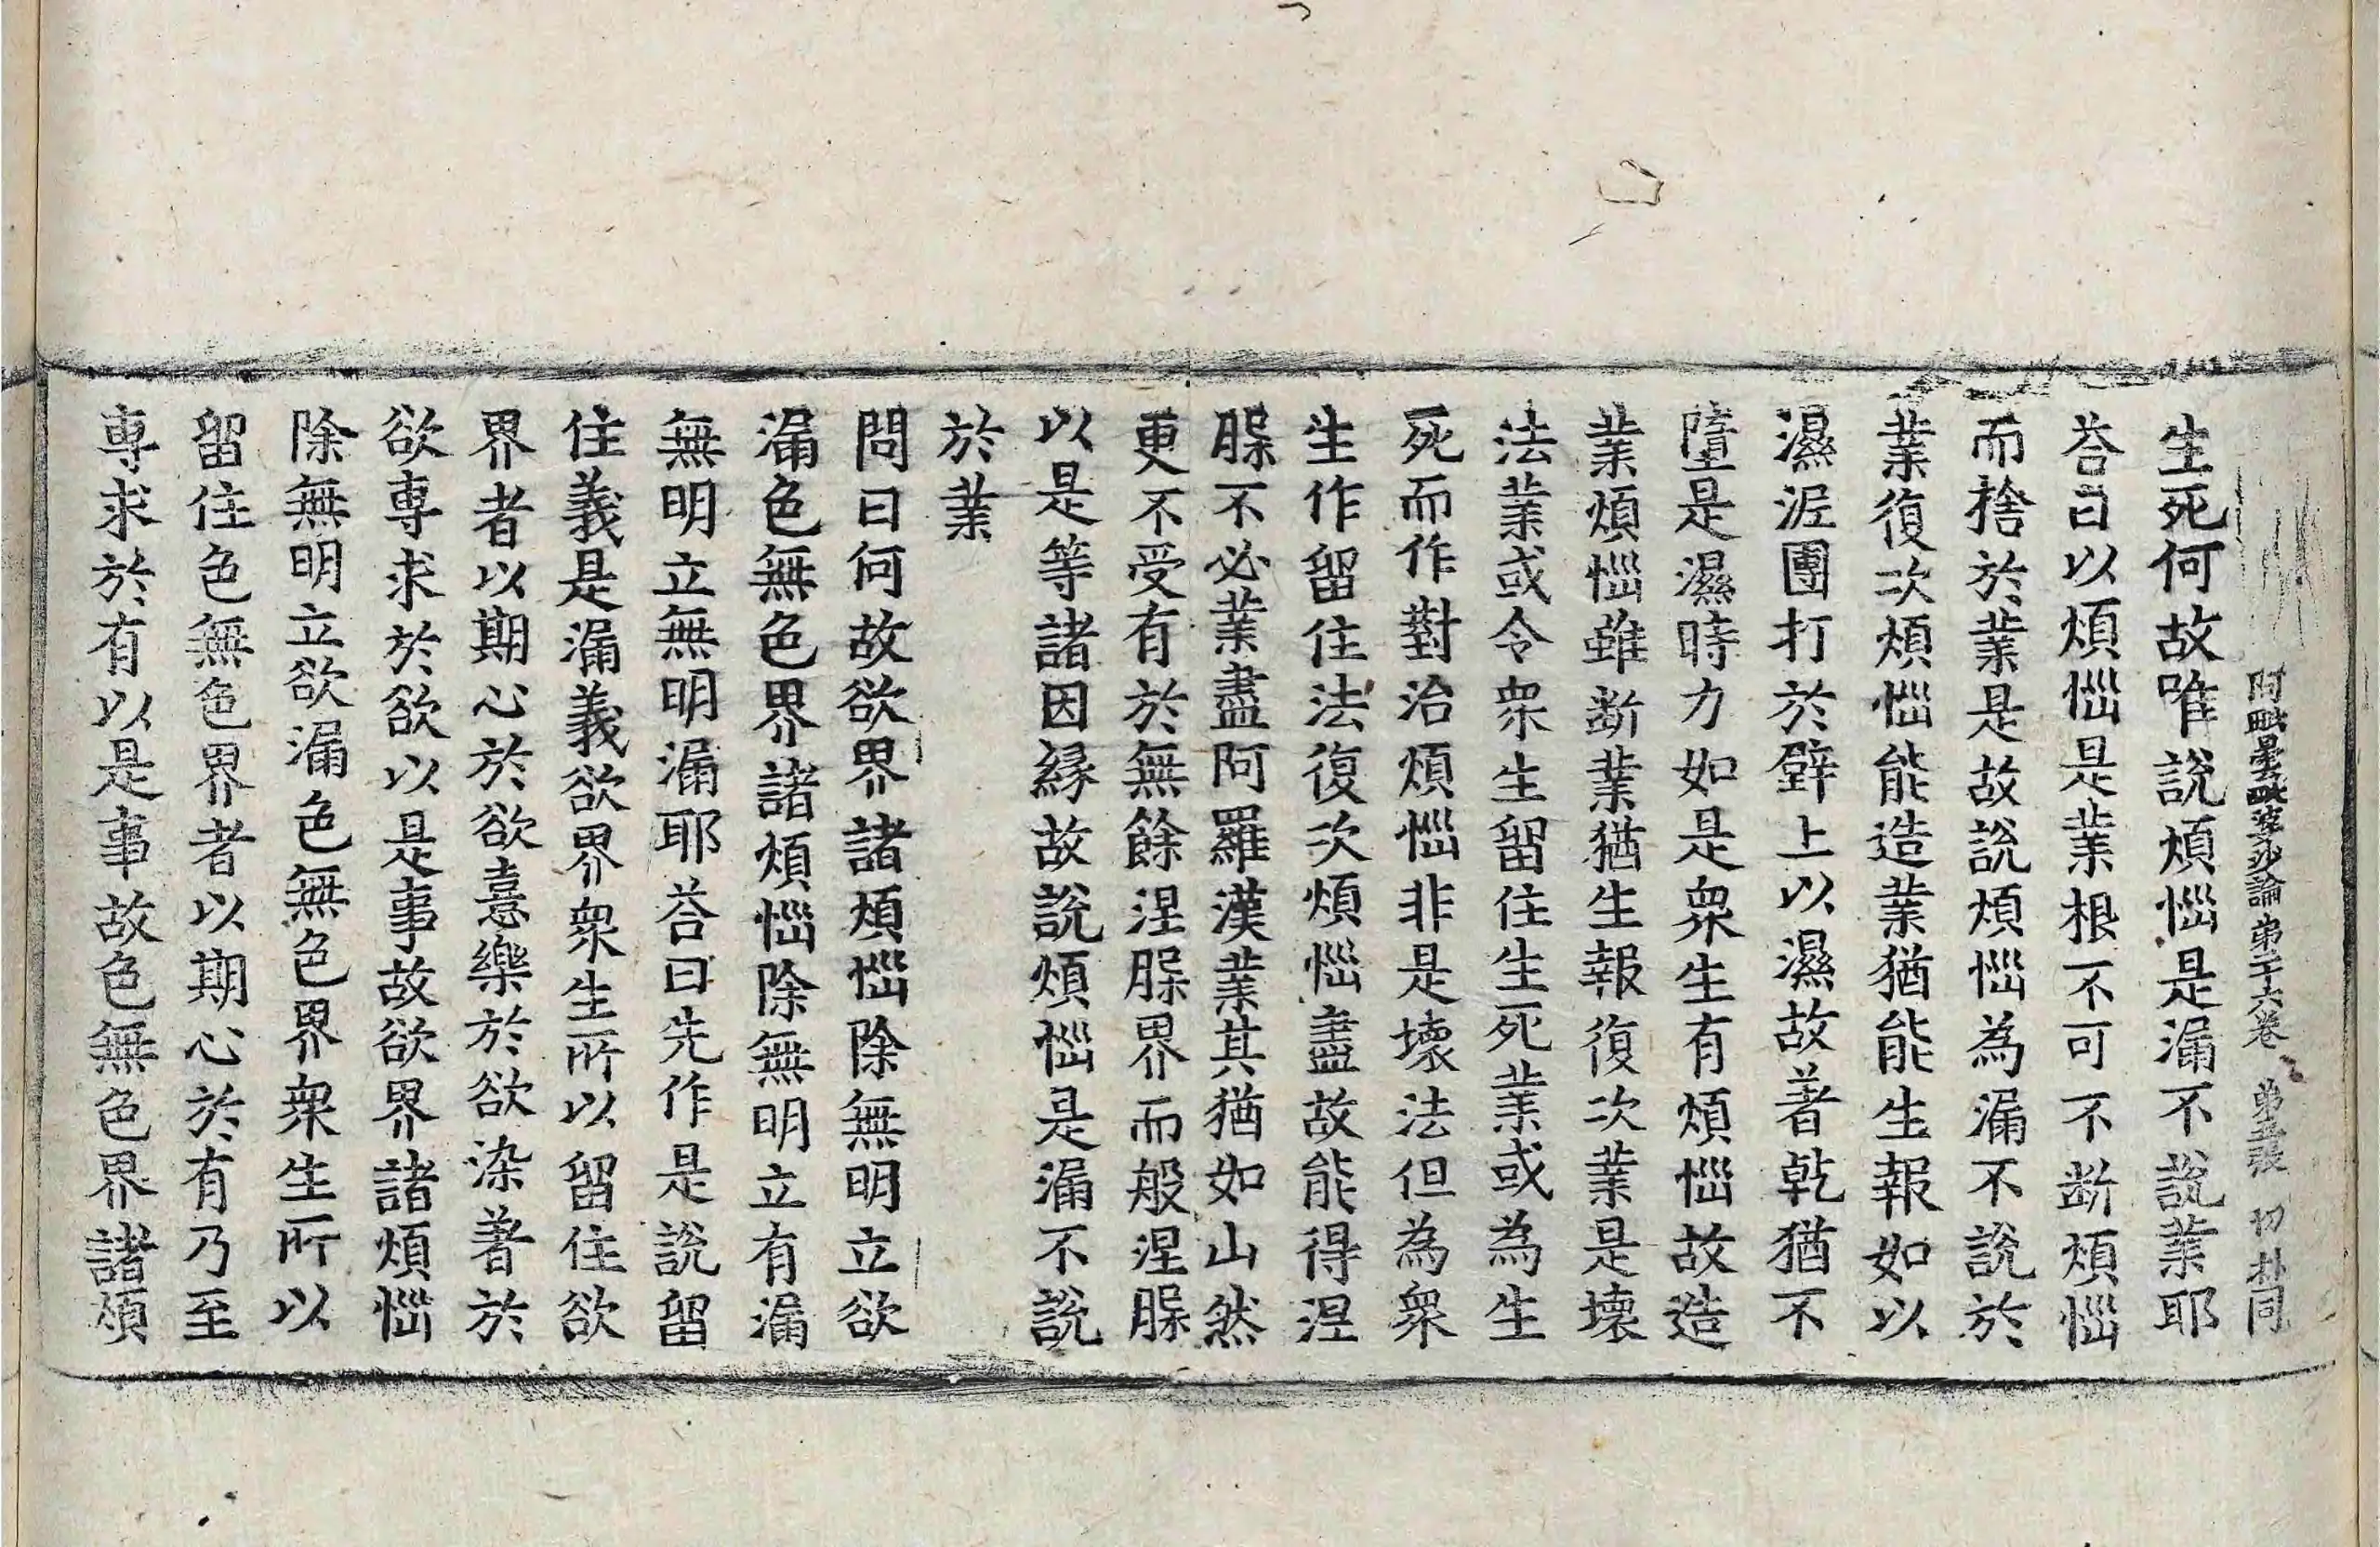 阿毗曇毗婆沙論 弟二十六卷 弟五張 切 朴同
生死何故唯說煩惱是漏不說業耶
荅曰以煩惱是業根不可不断煩惱
而捨於業是故說煩惱為漏不說於
業復次煩惱能造業猶能生報如以
濕泥團打於壁上以濕故著乾猶不
墮是濕時力如是衆生有煩惱故造
業煩惱雖断業猶生報復次業是壞
法業或令衆生留住生死業或為生
死而作對治煩惱非是壞法但為衆
生作留住法復次煩惱盡故能得涅
槃不必業盡阿羅漢業其猶如山然
更不受有於無餘涅槃界而般涅槃
以是等諸因緣故說煩惱是漏不說
於業
問曰何故欲界諸煩惱除無明立欲
漏色無色界諸煩惱除無明立有漏
無明立無明漏耶荅曰先作是說留
住義是漏義欲界衆生所以留住欲
界者以期心於欲憙樂於欲染著於
欲専求於欲以是事故欲界諸煩惱
除無明立欲漏色無色界衆生所以
留住色無色界者以期心於有乃至
専求於有以是事故色無色界諸煩